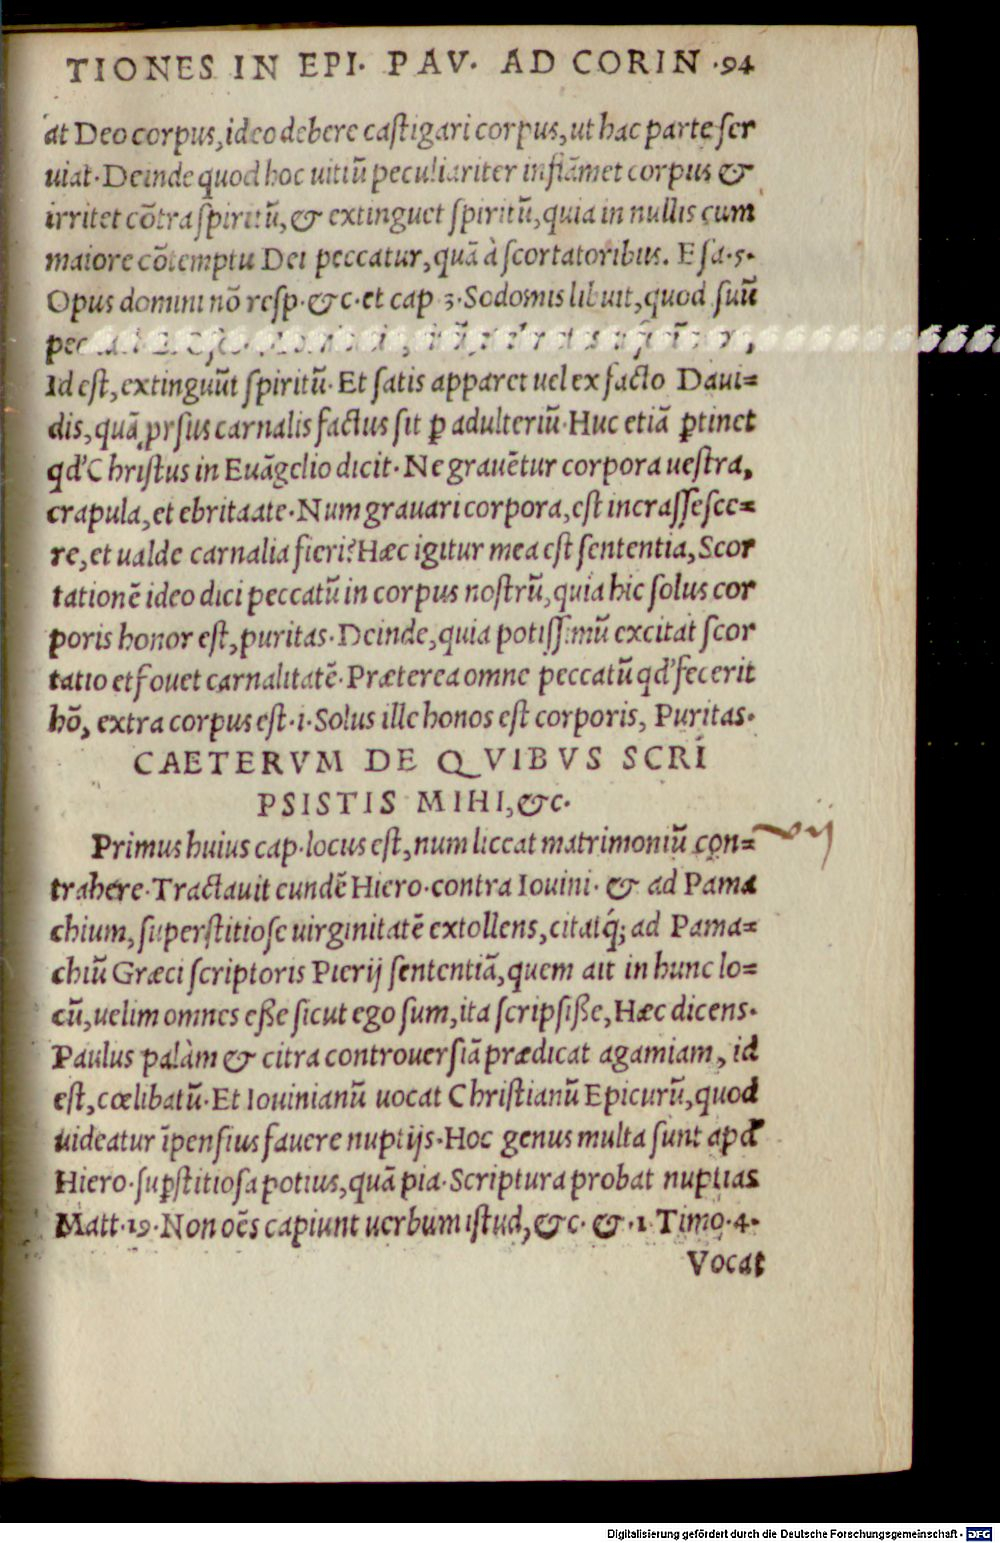 TIONES IN EPI. PAV. AD CORIN .94
at Deo corpus, ideo debere castigari corpus, ut hac parte ser
uiat. Deinde quod hoc uitiũ peculiariter inflãmet corpus &
irritet cõtra spiritũ, & extinguet spiritũ, quia in nullis cum
maiore cõtemptu Dei peccatur, quã à scortatoribus. Esa.5.
Opus domini nõ resp. &c. et cap 3. Sodomis libuit, quod suũ
Id est, extinguũt spiritũ. Et satis apparet uel ex facto Daui=
dis, quã ꝓrsus carnalis factus sit ꝑ adulteriũ. Huc etiã ꝑtinet
qd' Christus in Euãgelio dicit. Ne grauẽtur corpora uestra,
crapula, et ebritaate. Num grauari corpora, est incrassesce=
re, et ualde carnalia fieri? Hæc igitur mea est sententia, Scor
tationẽ ideo dici peccatũ in corpus nostrũ, quia hic solus cor
poris honor est, puritas. Deinde, quia potissimũ excitat scor
tatio et fouet carnalitatẽ. Præterea omne peccatũ qd' fecerit
hõ, extra corpus est .i. Solus ille honos est corporis, Puritas.
CAETERVM DE QVIBVS SCRI
PSISTIS MIHI, &c.
Primus huius cap. locus est, num liceat matrimoniũ con= vij
trahere. Tractauit eundẽ Hiero. contra Iouini. & ad Pama
chium, superstitiose uirginitatẽ extollens, citatq́; ad Pama=
chiũ Græci scriptoris Pierij sententiã, quem ait in hunc lo=
cũ, uelim omnes eße sicut ego sum, ita scripsiße, Hæc dicens.
Paulus palàm & citra controuersiã prædicat agamiam, id
est, cœlibatũ. Et Iouinianũ uocat Christianũ Epicurũ, quod
uideatur ĩpensius fauere nuptijs. Hoc genus multa sunt apd'
Hiero. suꝑstitiosa potius, quã pia. Scriptura probat nuptias
Matt.19. Non oẽs capiunt uerbum istud, &c. & .1 Timo.4.
Vocat
Digitalisierung gefördert durch die Deutsche Forschungsgemeinschaft - DFG